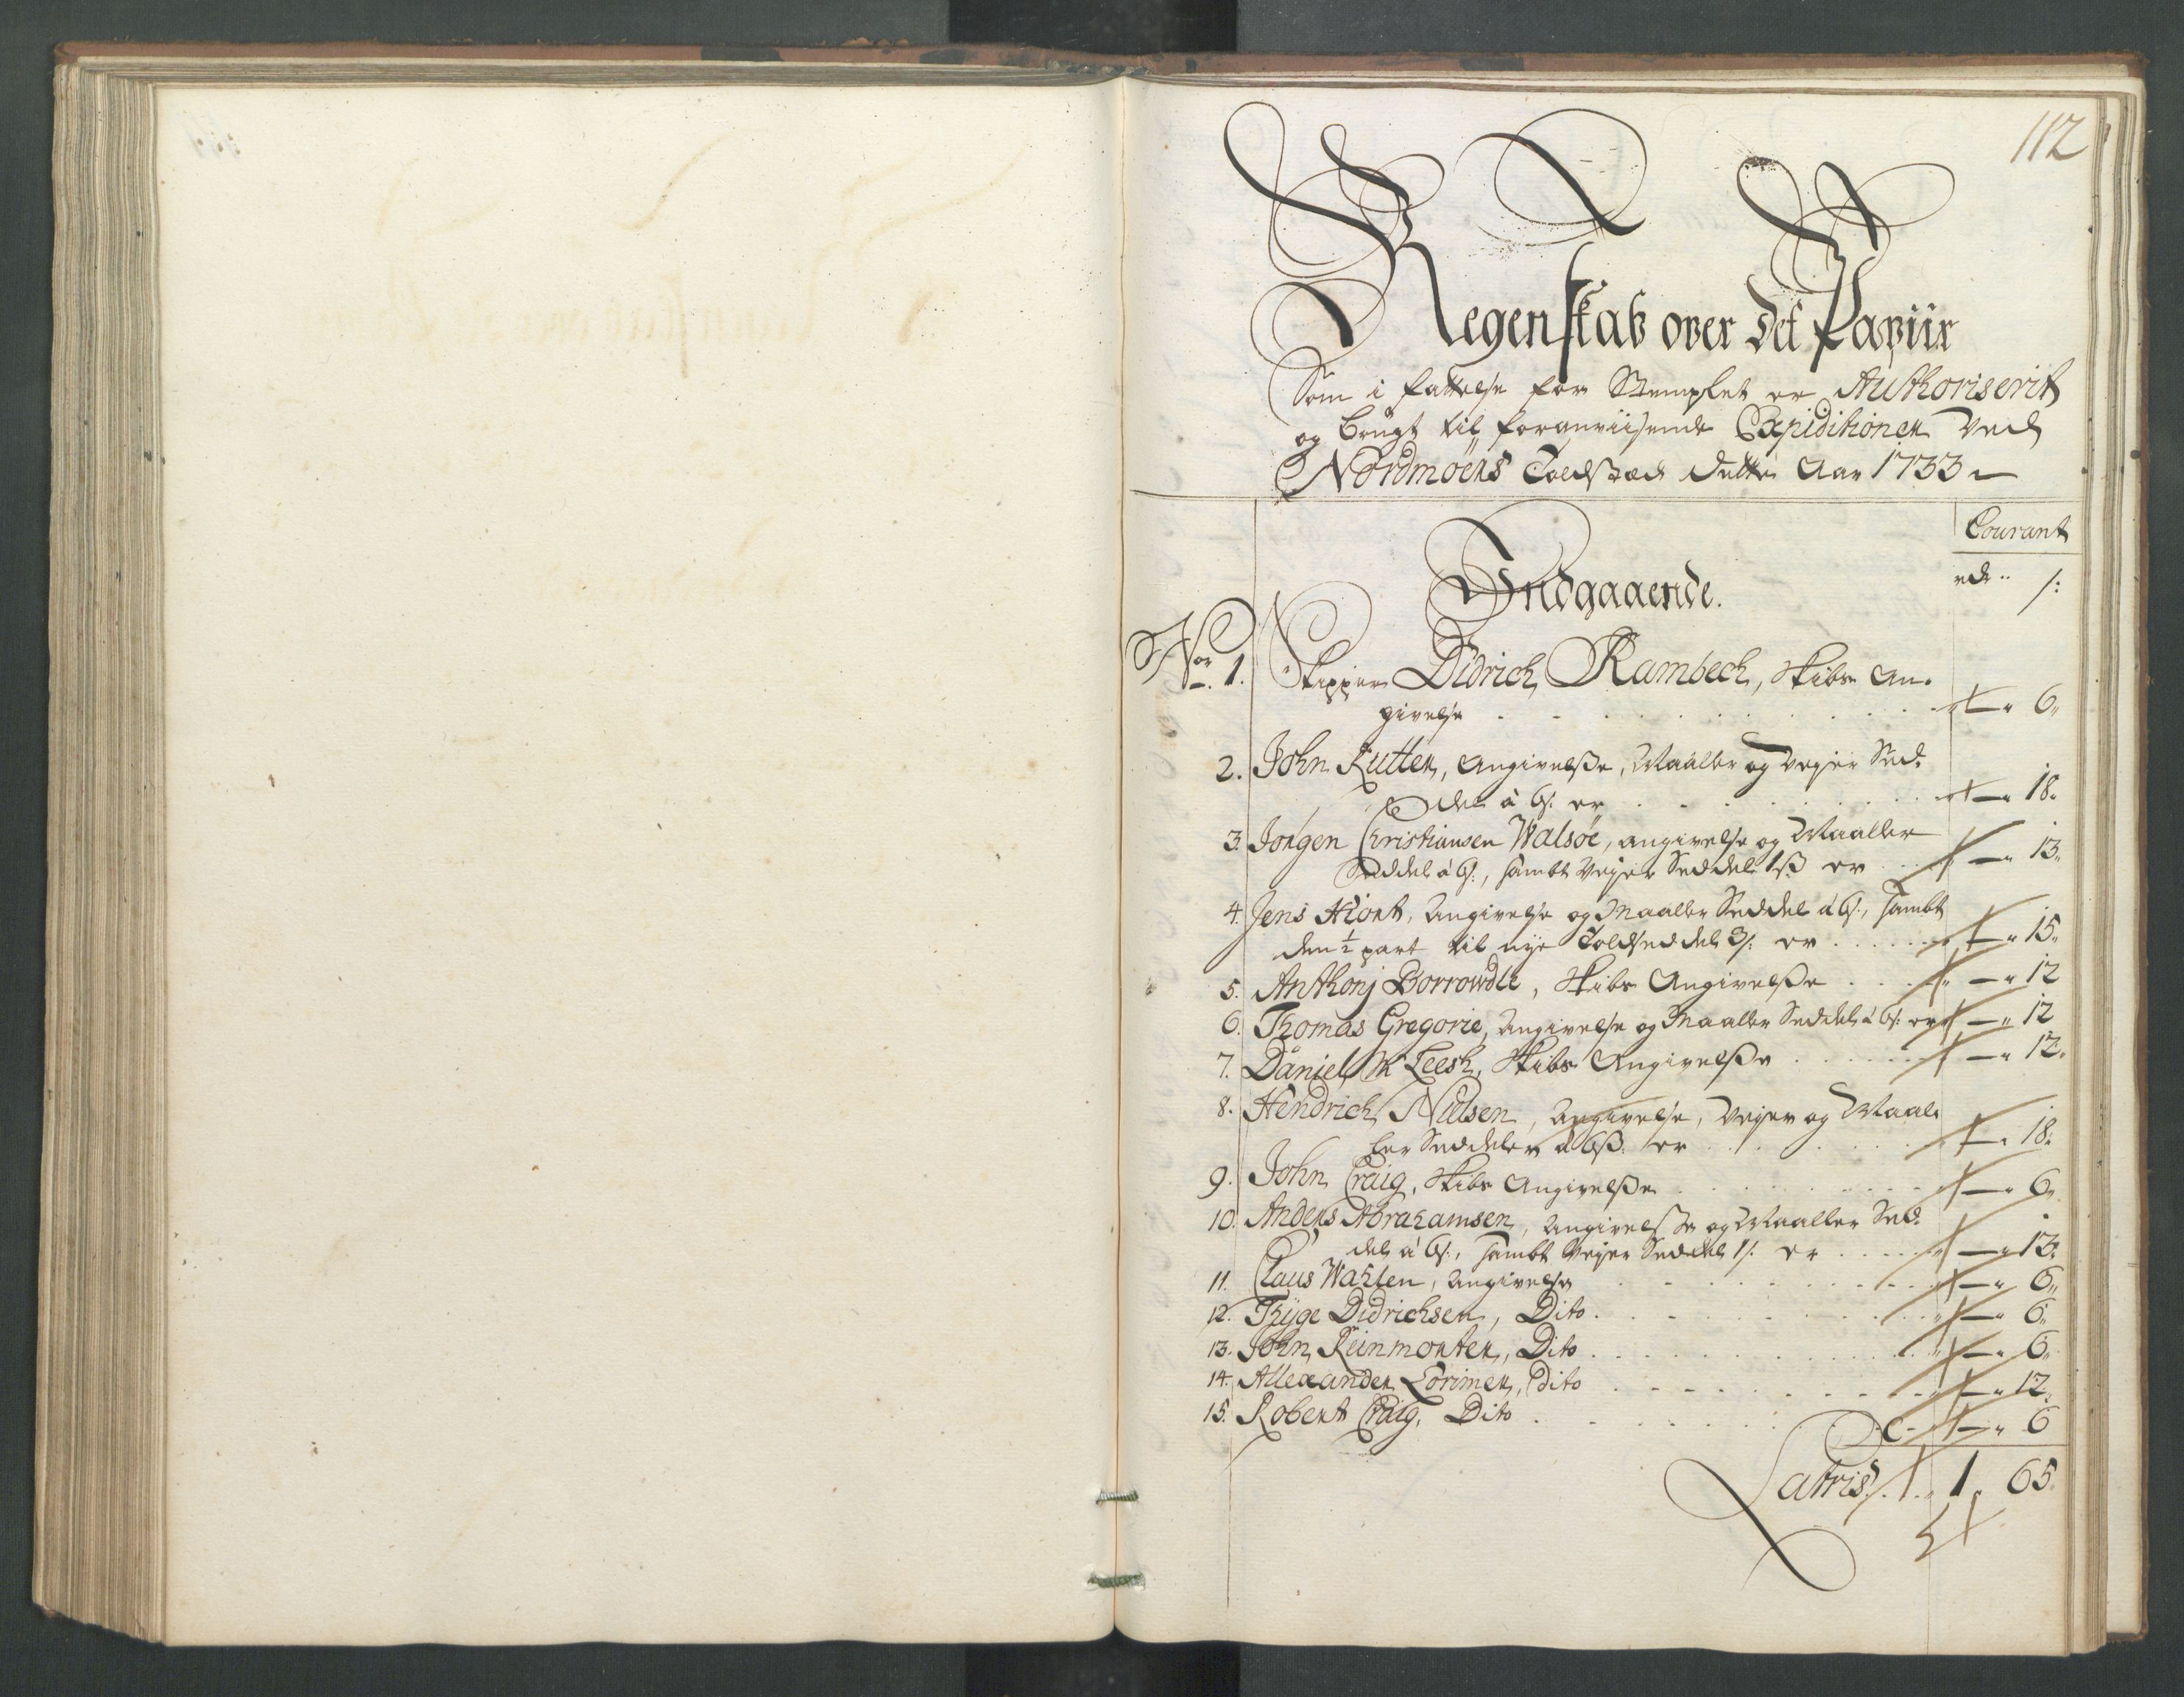 112
Regenskab over det Papiir
Som i fattelse for Stemplet er Authoriserit
og brugt til foranviisende Expiditioner ved
Nordmöers Toldsted dette Aar 1733
Courant
rdr s:
Indgaaende.
No. 1. Skipper Didrich Rambech, Skibs An-
givelse - " 6"
2. John Rutter, Angivelse, Maaler og Vejer Sed-
deler à 6s: er - " 18"
3. Jörgen Christiansen Walsöe, angivelse og Maaler
Seddel à 6s:, sambt Vejer Seddel 1s er - " 13"
4. Jens Hiort, Angivelse og Maaler Seddel à 6s:, sambt
den ½ part til nye Toldseddel 3s: er - " 15"
5. Anthonj Borrowdle, Skibs Angivelse - " 12
6. Thomas Gregorie, Angivelse og Maaler Seddel à 6s: er - " 12
7. Daniel Leesk, Skibs Angivelse - " 12"
8. Hendrich Nielsen, Angivelse, Vejer og Maa-
ler Seddeler à 6s er - " 18"
9. John Craig, Skibs Angivelse - " 6"
10. Anders Abrahamsen, Angivelse og Maaler Sed-
del à 6s:, sambt Vejer Seddel 1s: er - " 13"
11. Claus Wahlen, Angivelse - " 6"
12. Thÿge Didrichsen, Dito - " 6"
13. John Reinmorter, Dito - " 6"
14. Allexander Lorimer, Dito - " 12"
15. Robert Craig, Dito - " 6
Latris 1 " 65